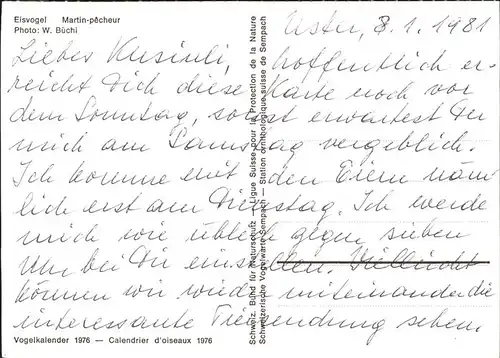 Eisvogel Martin-pêcheur
Photo: W. Büchi
Uster, 8.1.1981
Lieber Kusiuli, hoffentlich er-
reicht Dich diese Karte noch vor
dem Sonntag, sonst erwartest Du
mich am Samstag vergeblich.
Ich komme mit den Eiern näm
lich erst am Dienstag. Ich werde
mich wie üblich gegen sieben
Uhr bei Dir einstellen. Vielleicht
können wir wieder miteinander die
interessante Tiersendung sehen.
Vogelkalender 1976 — Calendrier d'oiseaux 1976
Schweiz. Bund für Naturschutz — Ligue Suisse pour la Protection de la Nature
Schweizerische Vogelwarte Sempach — Station ornithologique suisse de Sempach